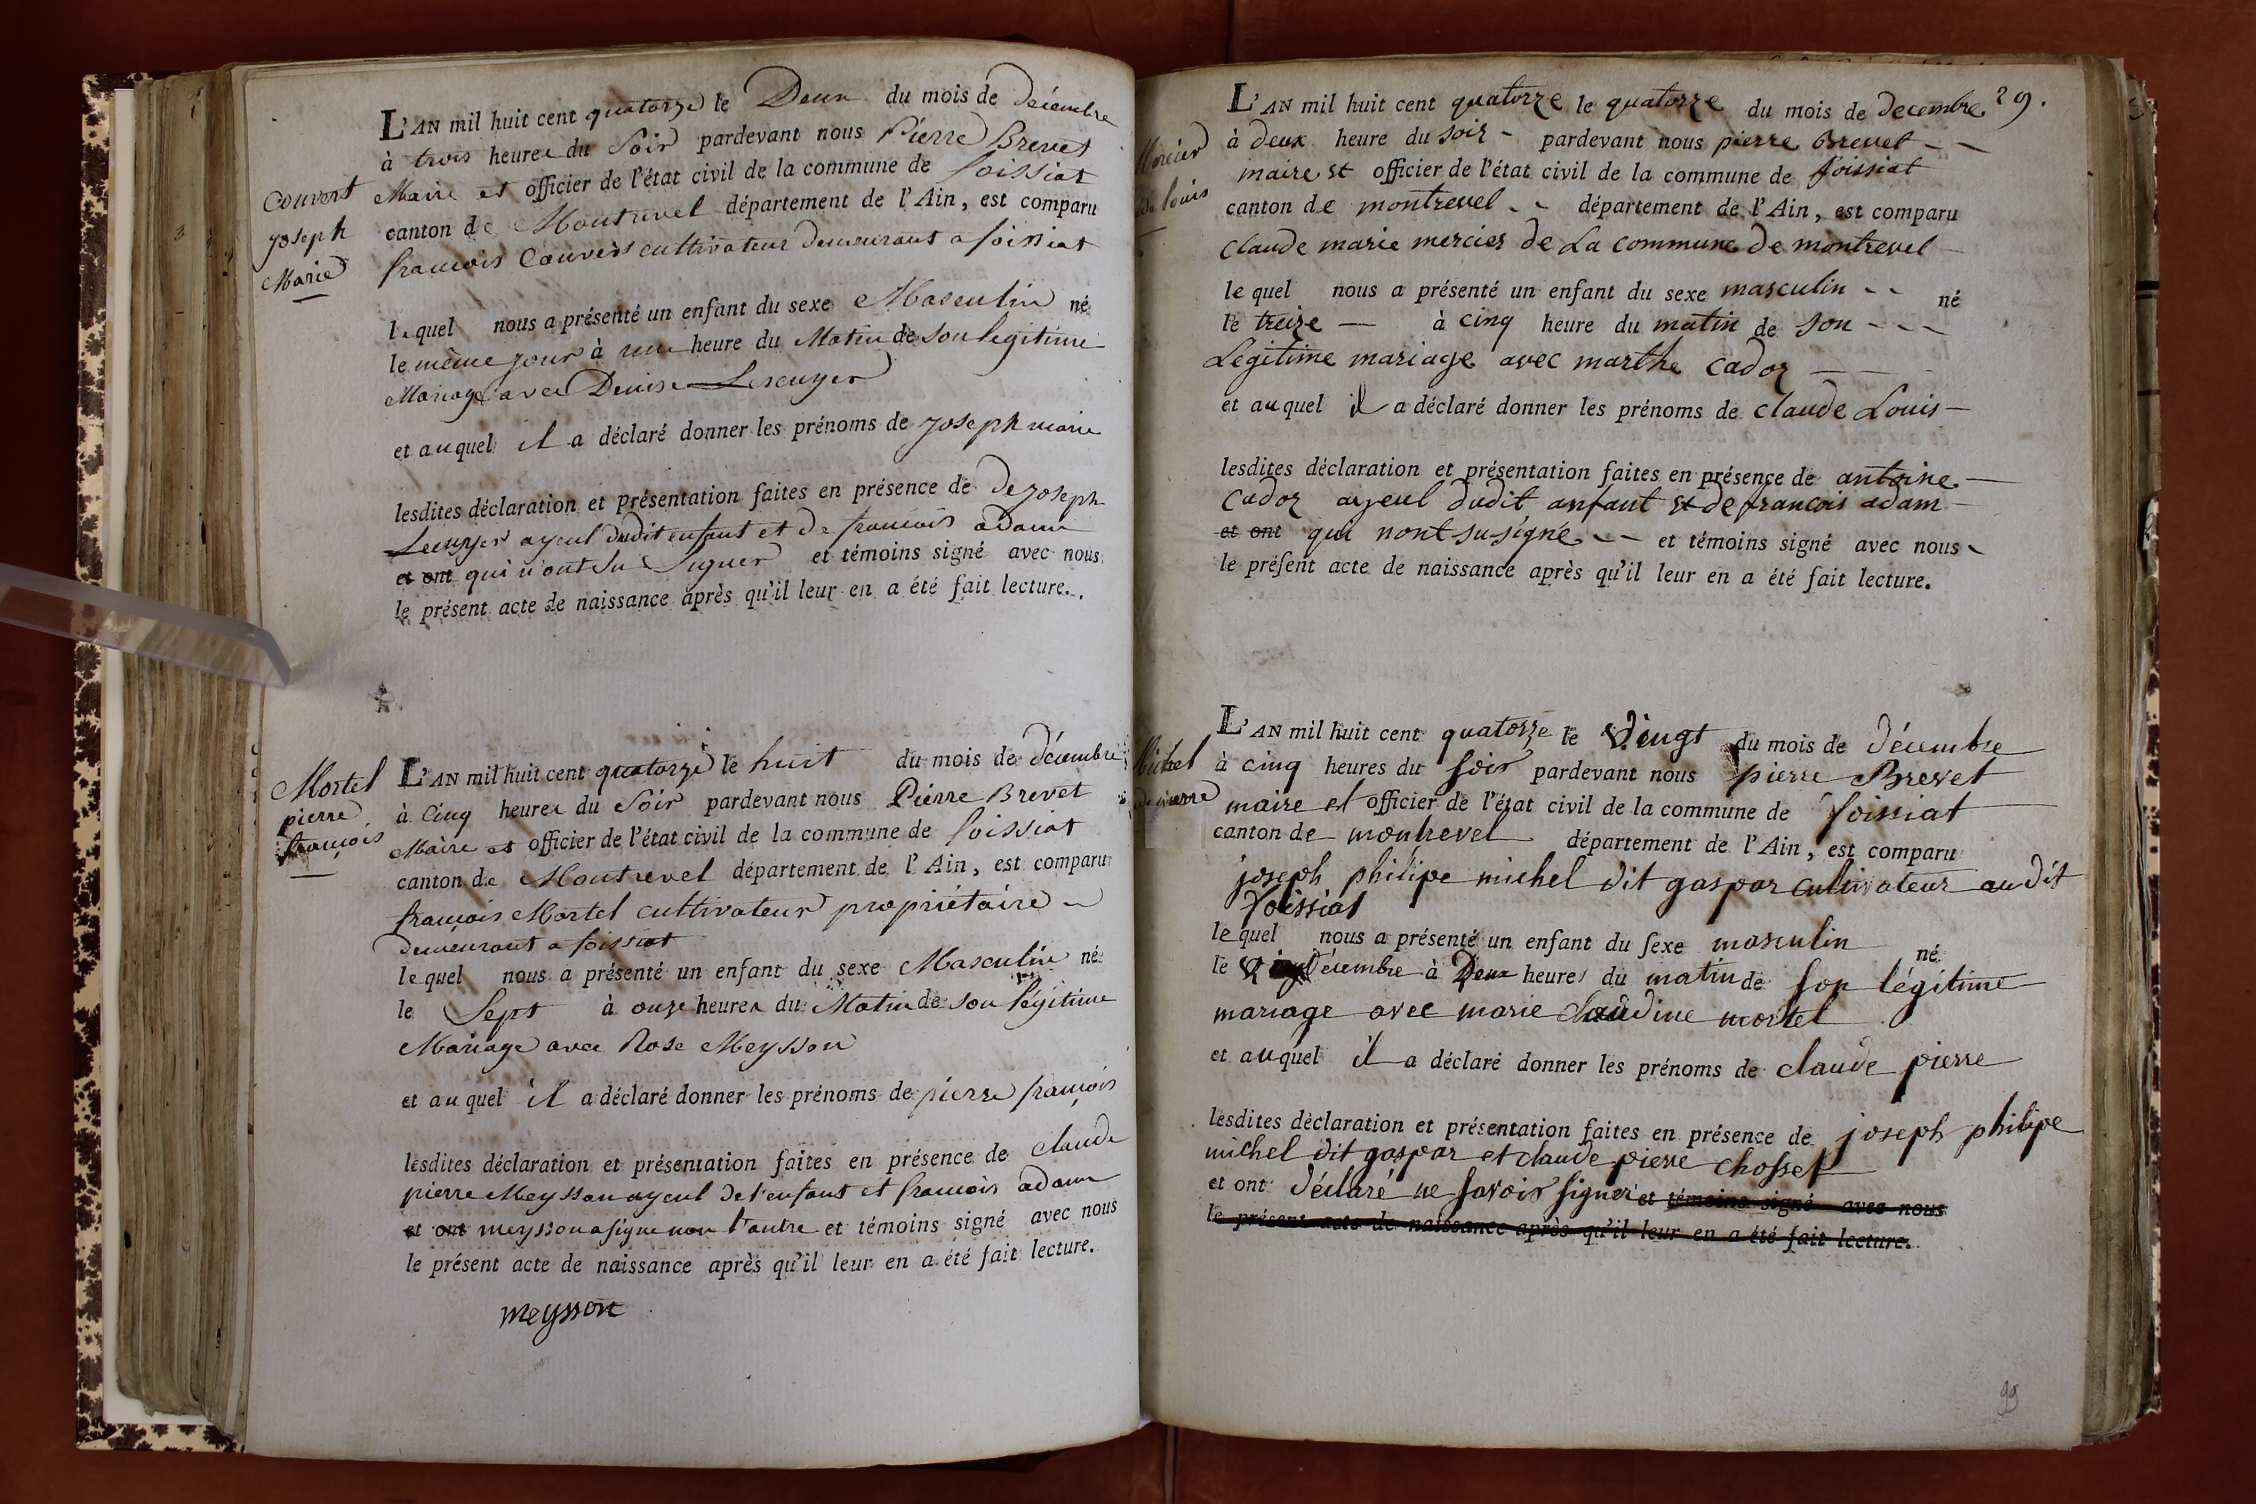 Couvert
Joseph
Marie
L'AN mil huit cent quatorze le Deux du mois de décembre
à trois heures du Soir pardevant nous Pierre Brevet
Maire et officier de l'état civil de la commune de foissiat
canton de Montrevel département de l'Ain, est comparu
françois Couvert cultivateur demeurant a foissiat
le quel nous a présenté un enfant du sexe Masculin né
le même jour à une heure du Matin de son legitime
Mariage avec Denise Lescuyer
et au quel il a déclaré donner les prénoms de joseph marie
lesdites déclaration et présentation faites en présence de De joseph
Lecuyer ayeul dudit enfant et de francois adam
et ont qui n'ont su Signer et témoins signé avec nous
le présent acte de naissance après qu'il leur en a été fait lecture.
Mortel
pierre
françois
L'AN mil huit cent quatorze le huit du mois de décembre
à Cinq heures du Soir pardevant nous Pierre Brevet
Maire et officier de l'état civil de la commune de foissiat
canton de Montrevel département de l'Ain, est comparu
françois Mortel cultivateur propriétaire
demeurant a foissiat
le quel nous a présenté un enfant du sexe Masculin né
le Sept à onze heures du Matin de son légitime
Mariage avec Rose Meysson
et au quel il a déclaré donner les prénoms de pierre françois
lesdites déclaration et présentation faites en présence de claude
pierre Meysson ayeul de l'enfant et francois adam
et ont meysson a signe non l'autre et témoins signé avec nous
le présent acte de naissance après qu'il leur en a été fait lecture.
meysson
29.
Mercier
louis
L'AN mil huit cent quatorze le quatorze du mois de decembre
à deux heure du soir - pardevant nous pierre Brevet - -
maire et officier de l'état civil de la commune de foissiat
canton de montrevel - - département de l'Ain, est comparu
claude marie mercier de La commune de montrevel -
le quel nous a présenté un enfant du sexe masculin - - né
le treize - à cinq heure du matin de son - - -
Legitime mariage avec marthe cadoz -
et au quel il a déclaré donner les prénoms de claude Louis -
lesdites déclaration et présentation faites en présence de antoine -
cadoz ayeul dudit anfant et de francois adam
et ont qui nont su signé - - et témoins signé avec nous
le présent acte de naissance après qu'il leur en a été fait lecture.
Michel
pierre
L'AN mil huit cent quatorze le Vingt du mois de décembre
à cinq heures du soir pardevant nous pierre Brevet
maire et officier de l'état civil de la commune de foissiat
canton de montrevel département de l'Ain, est comparu
joseph philipe michel dit gaspar cultivateur au dit
foissiat
le quel nous a présenté un enfant du sexe masculin né
le décembre à Deux heures du matin de son légitime
mariage avec marie claudine mortel
et au quel il a déclaré donner les prénoms de claude pierre
lesdites déclaration et présentation faites en présence de joseph philipe
michel dit gaspar et claude pierre chossel
et ont déclaré ne savoir signer et témoins signé avec nous
le présent acte de naissance après qu'il leur en a été fait lecture.
99